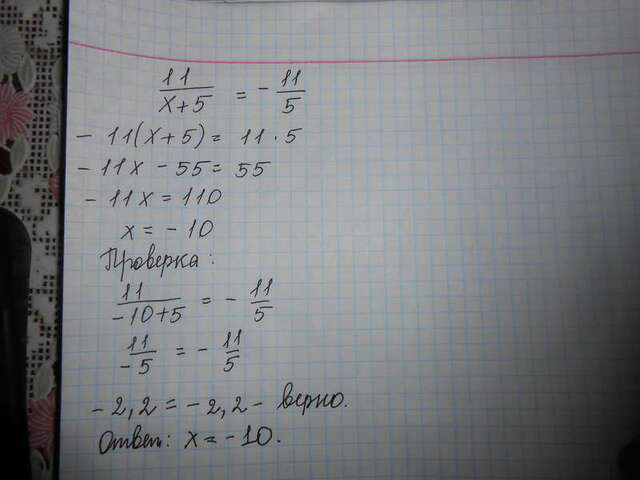 11/(x+5) = - 11/5
- 11(x+5) = 11 · 5
- 11x - 55 = 55
- 11x = 110
x = - 10
Проверка:
11/(-10+5) = - 11/5
11/-5 = - 11/5
- 2,2 = - 2,2 - верно.
Ответ: x = - 10.